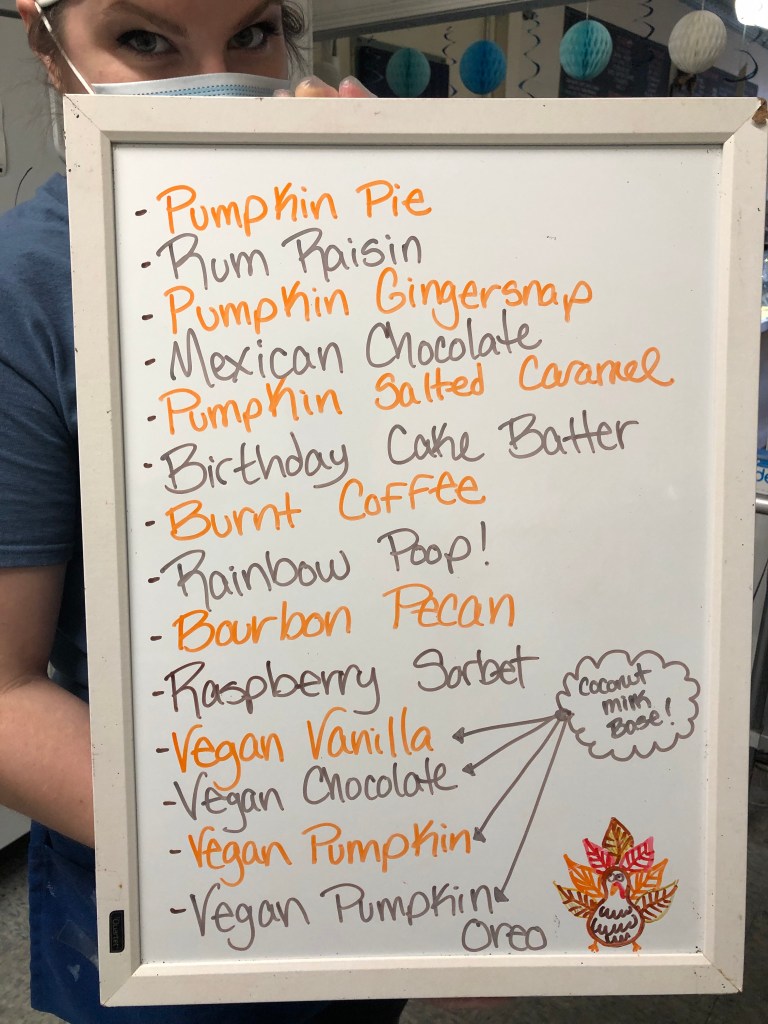 - Pumpkin Pie
- Rum Raisin
- Pumpkin Gingersnap
- Mexican Chocolate
- Pumpkin Salted Caramel
- Birthday Cake Batter
- Burnt Coffee
- Rainbow Poop!
- Bourbon Pecan
- Raspberry Sorbet
- Vegan Vanilla
- Vegan Chocolate
- Vegan Pumpkin
- Vegan Pumpkin
Oreo
Coconut
milk
Base!
Quartet